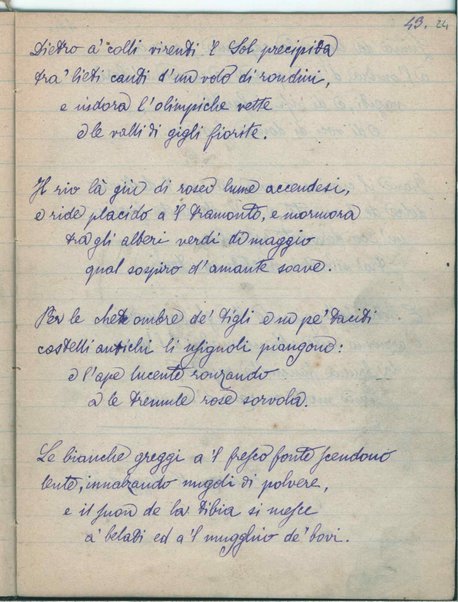 43. 24
Dietro a' colli virenti il Sol precipita
tra' lieti canti d'un volo di rondini,
e indora l'olimpiche vette
e le valli di gigli fiorite.
Il rio là giù di roseo lume accendesi,
e ride placido a 'l tramonto, e mormora
tra gli alberi verdi di maggio
qual sospiro d'amante soave.
Per le chete ombre de' tigli e un pe' taciti
castelli antichi li usignoli piangono:
e l'ape lucente ronzando
a le tremule rose sorvola.
Le bianche greggi a 'l fresco fonte scendono
lente, innalzando nugoli di polvere,
e il suon de la tibia si mesce
a' belati ed a 'l mugghio de' bovi.